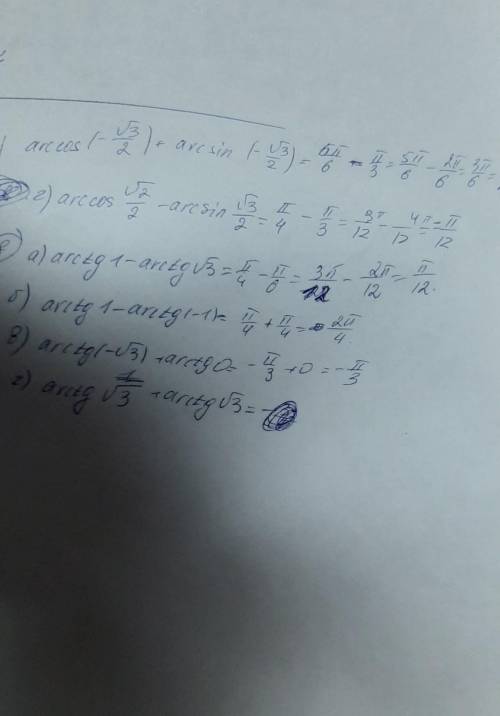 ) arccos (-√3/2) + arcsin (-√3/2) = 5π/6 - π/3 = 5π/6 - 2π/6 = 3π/6 =
г) arccos √2/2 - arcsin √3/2 = π/4 - π/3 = 3π/12 - 4π/12 = -π/12
а) arctg 1 - arctg √3 = π/4 - π/6 = 3π/12 - 2π/12 = π/12.
б) arctg 1 - arctg (-1) = π/4 + π/4 = 2π/4.
в) arctg (-√3) + arctg 0 = -π/3 + 0 = -π/3
г) arctg 1/√3 + arctg √3 =